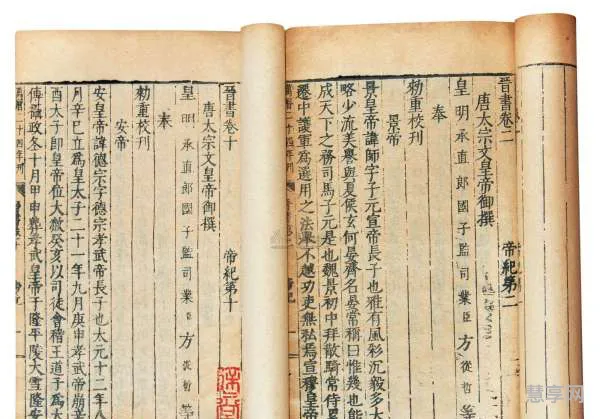 晉書卷二
唐太宗文皇帝御撰 帝紀第二
皇明承直郎國子監司業臣方從哲等
奉
勑重校刊
景帝
景皇帝諱師字子元宣帝長子也雅有風彩沉毅多大
略少流美譽與夏侯玄何晏齊名晏常稱曰惟幾也能
成天下之務司馬子元是也魏景初中拜散騎常侍
遷中護軍為選用之法舉不越功吏無私焉宣穆皇
萬曆二十四年刊
晉書卷十
唐太宗文皇帝御撰 帝紀第十
皇明承直郎國子監司業臣方從哲等
奉
勑重校刊
安帝
安皇帝諱德宗字德宗孝武帝長子也太元十二年八
月辛巳立爲皇太子二十一年九月庚申孝武帝崩
酉太子即皇帝位大赦癸亥以司徒會稽王道子爲太
傅攝政冬十月甲申葬孝武皇帝于隆平陵大雪
萬曆二十四年刊
慧享网